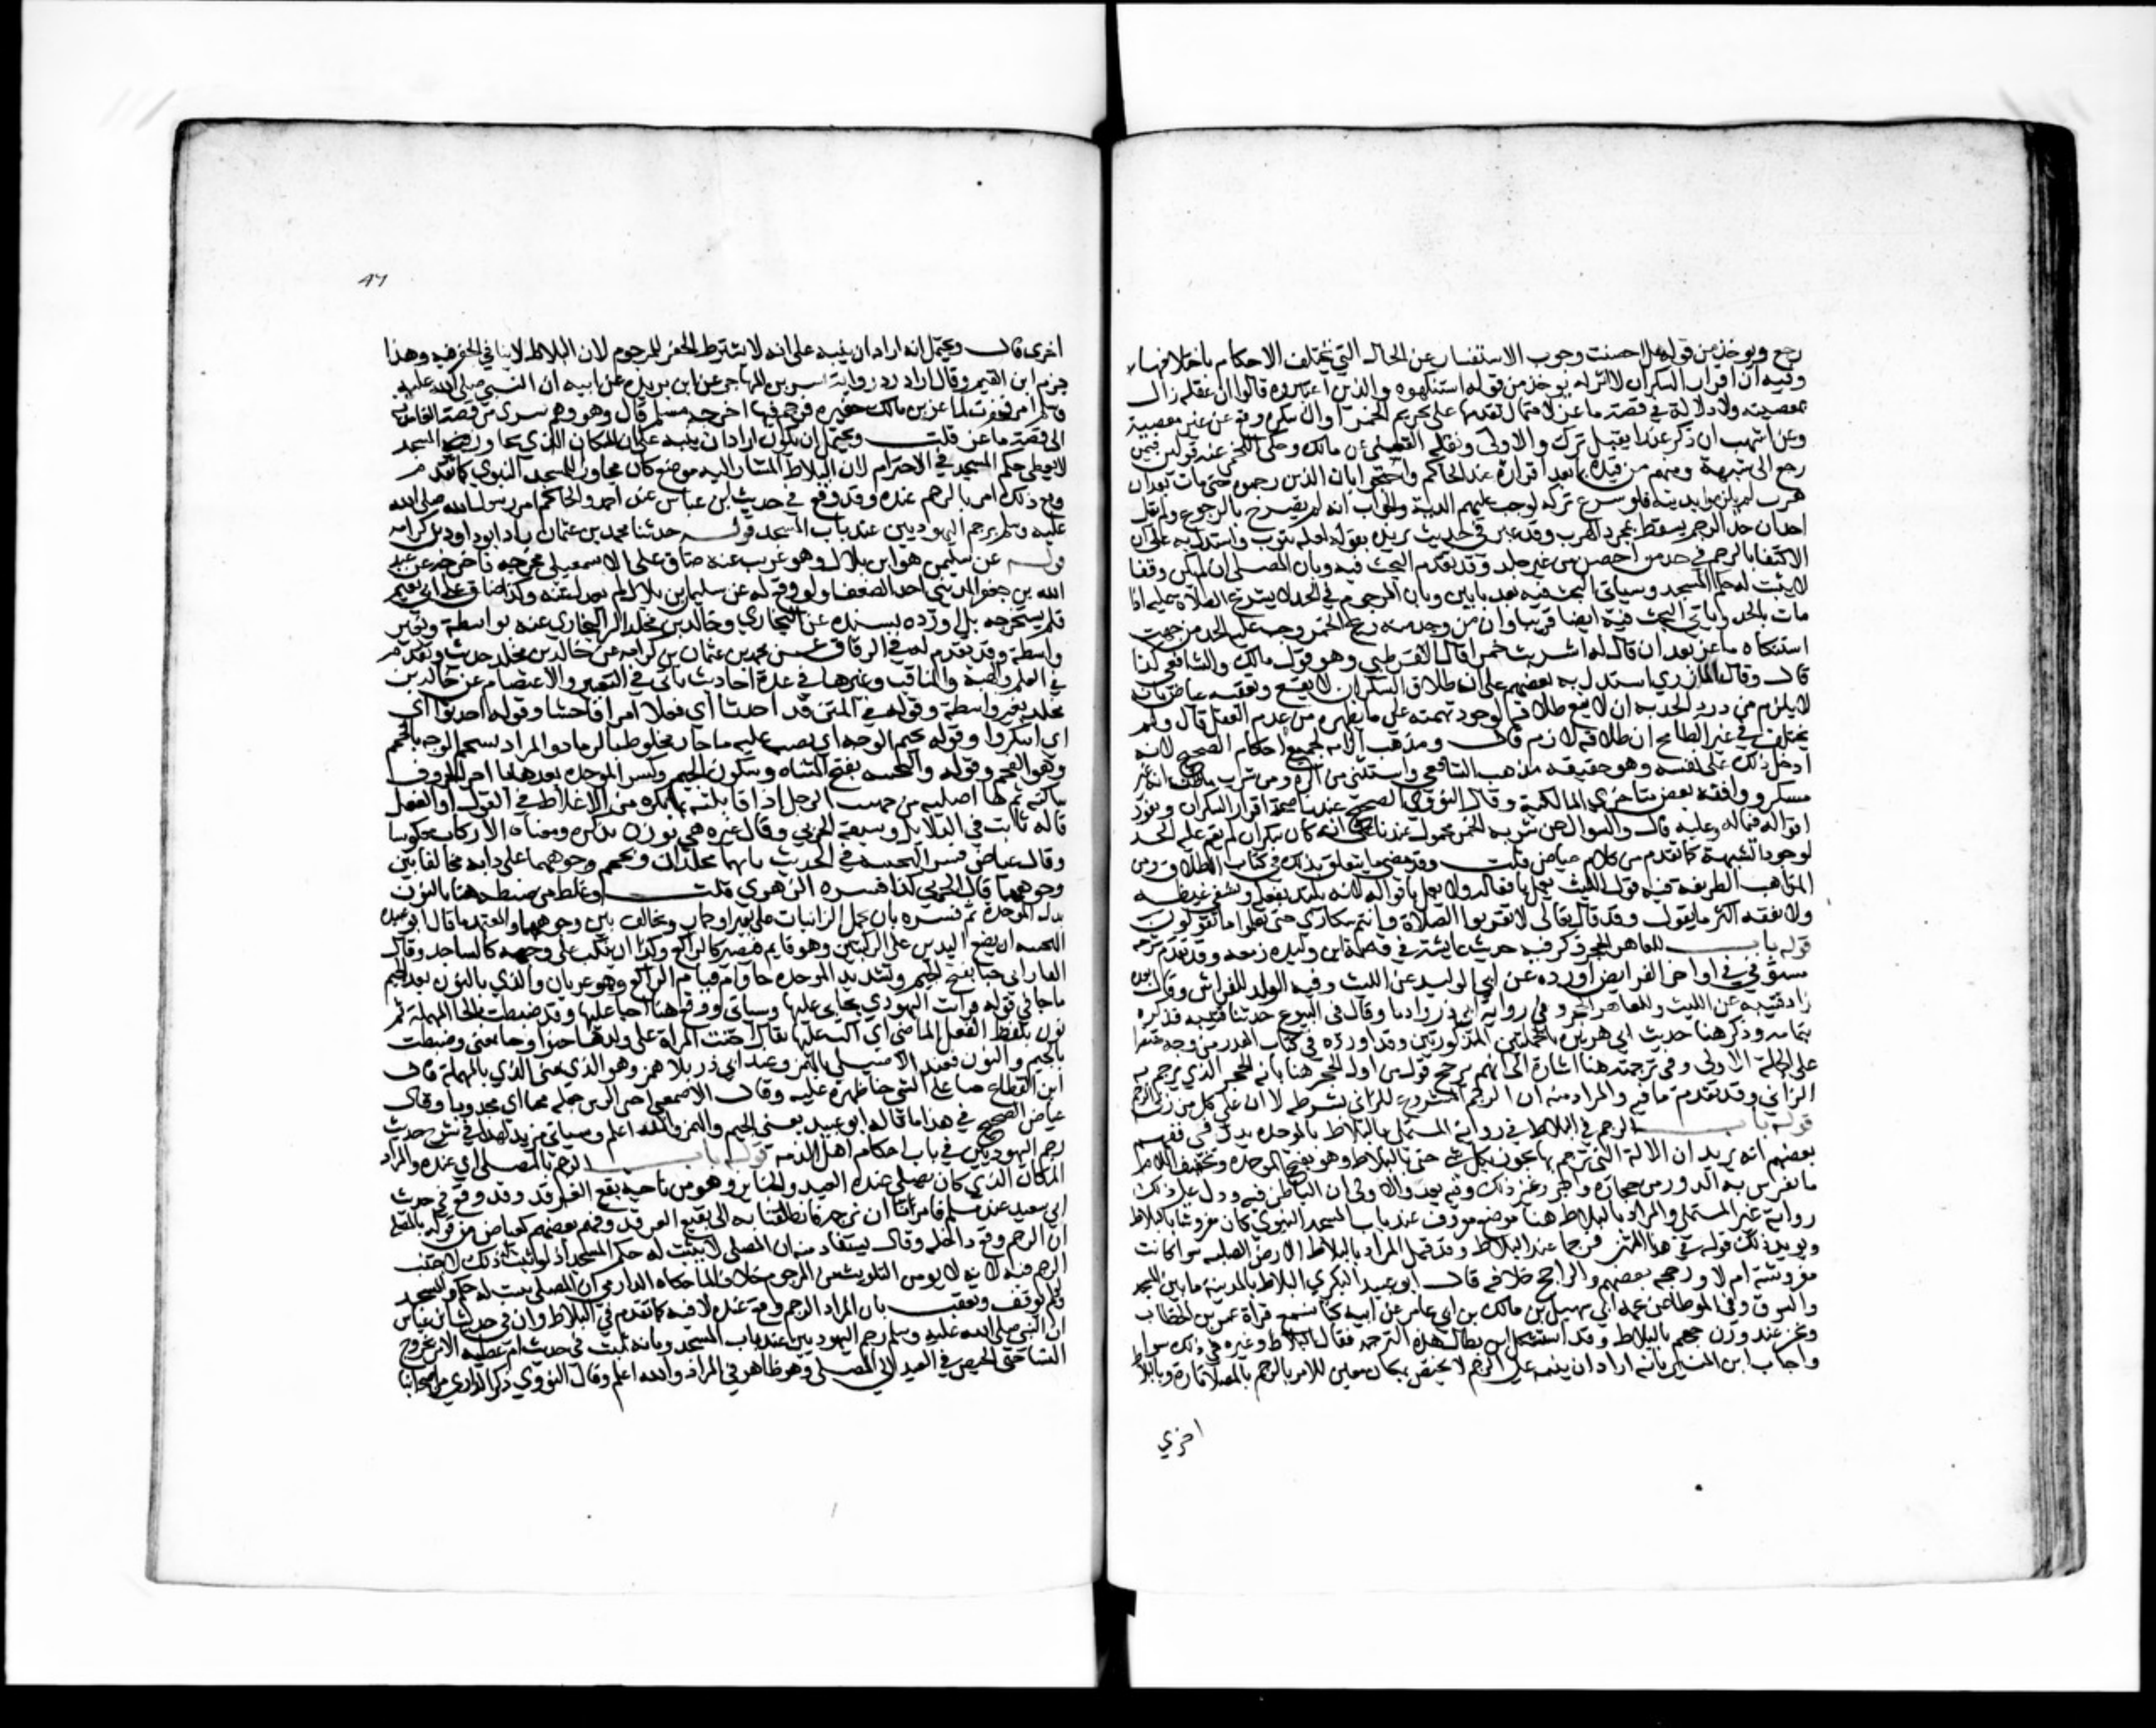 رجع ويوخذ من قوله هل احصنت وجوب الاستفسار عن الحال التي تختلف الاحكام باختلافها
وفيه ان اقرار السكران لا اثر له يوخذ من قوله استنكهوه والذين اعتبروه قالوا ان عقله زال
بمعصيته ولا دلالة في قصة ماعز لاحتمال تقدمها على تحريم الخمر او ان سكره وقع عن غير معصية
رجع الى شبهة ومنهم من قيده بما بعد اقراره عند الحاكم واحتجوا بان الذين رجموه حتى مات بعد ان
هرب لم يلزموا بديته فلو شرع تركه لوجبت عليهم الدية والجواب انه لم يصرح بالرجوع ولم يقل
احد ان حد الرجم يسقط بمجرد الهرب وقد عبر في حديث بريدة بقوله لعله يتوب واستدل به على
الاكتفا بالرجم في حد من احصن من غير جلد وقد تقدم البحث فيه وبان المصلى اذا لم يكن وقفا
لا يثبت له حكم المسجد وسياتي البحث فيه بعد بابين وبان المرجوم في الحد لا تشرع الصلاة عليه اذا
مات بالحد وياتي البحث فيه ايضا قريبا وان من وجد منه ريح الخمر وجب عليه الحد من جهة
استنكاه ماعز بعد ان قال له اشربت خمرا قال القرطبي وهو قول مالك والشافعي كذا
قال وقال المازري استدل به بعضهم على ان طلاق السكران لا يقع وتعقبه عياض بانه
لا يلزم من درء الحد به ان لا يقع طلاقه لوجود تهمته على ما يظهره من عدم العقل قال ولم
يختلف في غير الطافح ان طلاقه لازم قال ومذهبنا الزامه بجميع احكام الصحيح لانه
ادخل ذلك على نفسه وهو حقيقة مذهب الشافعي واستثنى من اكره ومن شرب ما ظن انه غير
مسكر ووافقه بعض متاخري المالكية وقال النووي الصحيح عندنا صحة اقرار السكران ونفوذ
اقواله فيما له وعليه قال والسوال عن شربه الخمر محمول عندنا على انه لو كان سكران لم يقم عليه الحد
المذاهب الطريفة فيه قول الليث يعمل بافعاله ولا يعمل باقواله لانه يلتذ بفعله ويشفي غيظه
ولا يفقه اكثر ما يقول وقد قال تعالى لا تقربوا الصلاة وانتم سكارى حتى تعلموا ما تقولون
قوله باب للعاهر الحجر ذكر فيه حديث عايشة في قصة ابن وليدة زمعة وقد تقدم شرحه
مستوفى في اواخر الفرايض اورده عن ابي الوليد عن الليث وفيه الولد للفراش وقال بعده
زاد قتيبة عن الليث وللعاهر الحجر وفي رواية ابي ذر زادنا وقال في البيوع حدثنا قتيبة فذكره
بتمامه وذكر هنا حديث ابي هريرة بالجملتين المذكورتين وقد اورده في كتاب القدر من وجه
على الجملة الاولى وفي ترجمته هنا اشارة الى انه يرجح قول من اول الحجر هنا بانه الحجر الذي يرجم به
الزاني وقد تقدم ما فيه والمراد منه ان الرجم مشروع للزاني بشرطه لا ان على كل من زنى الرجم
قوله باب الرجم في البلاط في رواية المستملي بالبلاط بالموحدة بدل في ففهم
بعضهم انه يريد ان الالة التي يرجم بها تجوز بكل شي حتى بالبلاط وهو بفتح الموحدة وتخفيف اللام
ما تفرش به الدور من حجارة واجر وغير ذلك وفيه بعد والاولى ان الباء ظرفية ودل على ذلك
رواية غير المستملي والمراد بالبلاط هنا موضع معروف عند باب المسجد النبوي كان مفروشا بالبلاط
ويويد ذلك قوله في هذا المتن فرجما عند البلاط وقد قيل المراد بالبلاط الارض الصلبة سوا كانت
مفروشة ام لا ورجحه بعضهم والراجح خلافه قال ابو عبيد البكري البلاط بالمدينة ما بين المسجد
والسوق وفي الموطا عن عمه ابي سهيل بن مالك بن ابي عامر عن ابيه كنا نسمع قراة عمر بن الخطاب
ونحن عند دار ابي جهم بالبلاط وقد استشكل ابن بطال هذه الترجمة فقال البلاط وغيره في ذلك سوا
واجاب ابن المنير بانه اراد ان ينبه على ان الرجم لا يختص بمكان معين للامر بالرجم بالمصلى تارة وبالبلاط
اخري
47
اخرى قال ويحتمل انه اراد ان ينبه على انه لا يشترط الحفر للمرجوم لان البلاط لا يتاتى الحفر فيه وهذا
جزم ابن القيم وقال اراد رد رواية بشير بن المهاجر عن ابن بريدة عن ابيه ان النبي صلى الله عليه
وسلم امر فحفرت لماعز بن مالك حفيرة فرجم فيها اخرجه مسلم قال وهو وهم سرى من قصة الغامدية
الى قصة ماعز قلت ويحتمل ان يكون اراد ان ينبه على ان المكان الذي يجاور المسجد
لا يعطى حكم المسجد في الاحترام لان البلاط المشار اليه موضع كان مجاورا للمسجد النبوي كما تقدم
ومع ذلك امر بالرجم عنده وقد وقع في حديث ابن عباس عند احمد والحاكم امر رسول الله صلى الله
عليه وسلم برجم اليهوديين عند باب المسجد قوله حدثنا محمد بن عثمان زاد ابو ذر بن كرامة
قوله عن سليمن هو ابن بلال وهو غريب عنه ضاق على الاسمعيلي مخرجه فاخرجه عن عبد
الله بن جعفر المديني احد الضعفا ولو وقع له عن سليمان بن بلال لم يعدل عنه وكذا ضاق على ابي نعيم
فلم يستخرجه بل اورده بسنده عن البخاري وخالد بن مخلد اكثر البخاري عنه بواسطة وبغير
واسطة وقد تقدم له في الرقاق عن محمد بن عثمان بن كرامة عن خالد بن مخلد حديث وتقدم
في العلم والهبة والمناقب وغيرها في عدة احاديث ياتي في التعبير والاعتصام عن خالد بن
مخلد بغير واسطة وقوله في المتن قد احدثا اي فعلا امرا فاحشا وقوله احدثوا اي
اي ابتكروا وقوله تحميم الوجه اي يصب عليه ماء حار مخلوط بالرماد والمراد تسخيم الوجه بالحميم
وهو الفحم وقوله والتجبيه بفتح المثناة وسكون الجيم وكسر الموحدة بعدها
ساكنة ثم ها اصلية من جبهت الرجل اذا قابلته بما يكره من الاغلاظ في القول او الفعل
قاله ثابت في الدلايل وسبقه الحربي وقال غيره هي بوزن تذكرة ومعناه الاركاب منكوسا
وقال عياض فسر التجبيه في الحديث بانهما يجلدان ويحمم وجوههما على دابة مخالفا بين
وجوههما قال الحربي كذا فسره الزهري قلت وغلط من ضبطه هنا بالنون
بدل الموحدة ثم فسره بان يحمل الزانيان على بعير او حمار ويخالف بين وجوههما والمعتمد ما قال ابو عبيدة
التجبيه ان يضع اليدين على الركبتين وهو قايم فيصير كالراكع وكذا ان ينكب على وجهه كالساجد وقال
الفارابي جبا بفتح الجيم وتشديد الموحدة قام قيام الراكع وهو عريان والذي بالنون بعد الجيم
ماجا في قوله فرايت اليهودي يجانى عليها وسياتي ووقع هنا احنا عليها وقد ضبطت بالحا المهملة ثم
نون بلفظ الفعل الماضي اي اكب عليها يقال احنت المراة على ولدها حنوا وحنا بمعنى وضبطت
بالجيم والنون فعند الاصيلي بالهمز وعند ابي ذر بلا همز وهو الذي بمعنى الذي بالمهملة قال
ابن القطاع جنا على الشي حنا ظهره عليه وقال الاصمعي
عياض الصحيح في هذا ما قاله ابو عبيد يعني بالجيم والهمز والله اعلم وسياتي مزيد لهذا في شرح حديث
رجم اليهوديين في باب احكام اهل الذمة قوله باب الرجم بالمصلى اي عنده والمراد
المكان الذي كان يصلى عنده العيد والجنايز وهو من ناحية بقيع الغرقد وقد وقع في حديث
ابي سعيد عند مسلم فامرنا ان نرجمه فانطلقنا به الى بقيع الغرقد وفهم بعضهم كعياض من قوله بالمصلى
ان الرجم وقع داخله وقال يستفاد منه ان المصلى لا يثبت له حكم المسجد اذ لو ثبت له ذلك لاجتنب
الرجم فيه لانه لا يومن التلويث من المرجوم خلافا لما حكاه الدارمي ان المصلى يثبت له حكم المسجد
ولو لم يوقف وتعقب بان المراد ان الرجم وقع عنده لا فيه كما تقدم في البلاط وان في حديث ابن عباس
ان النبي صلى الله عليه وسلم رجم اليهوديين عند باب المسجد وبانه ثبت في حديث ام عطية الامر بخروج
النسا حتى الحيض في العيد الى المصلى وهو ظاهر في المراد والله اعلم وقال النووي ذكر الدارمي من اصحابنا